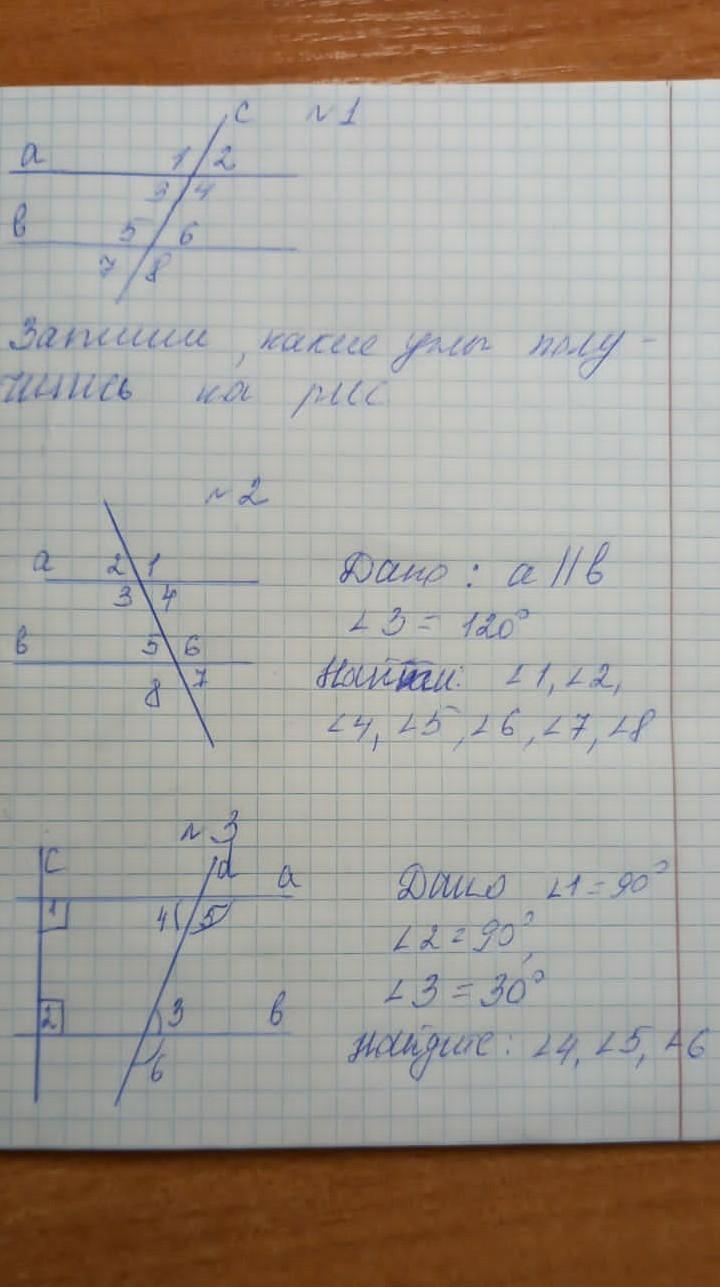 c №1
a 1 2
3 4
в 5 6
7 8
Запишим, какие углы полу-
чились на рис
№2
a 2 1
3 4
в 5 6
8 7
Дано: a || b
∠3 = 120°
Найти: ∠1, ∠2,
∠4, ∠5, ∠6, ∠7, ∠8
№3
c d a
1 4 5
2 3 в
6
Дано ∠1 = 90°
∠2 = 90°,
∠3 = 30°
Найдите: ∠4, ∠5, ∠6